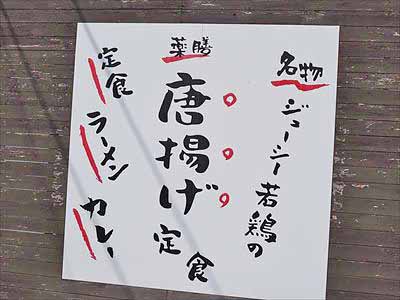 名物
ジューシー若鶏の
薬膳
唐揚げ定食
定食
ラーメン
カレー